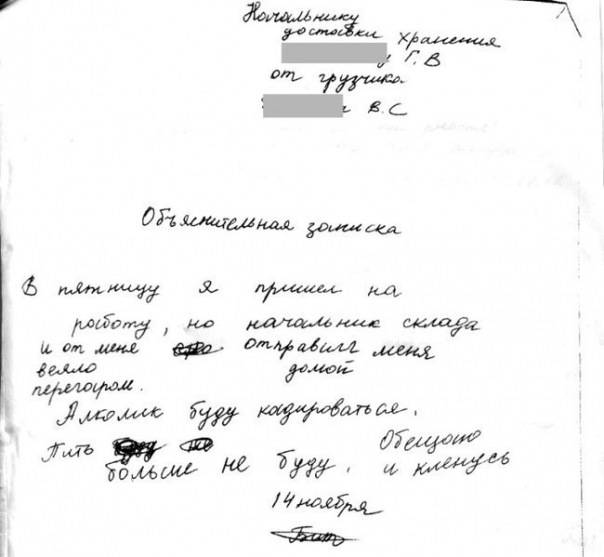 Начальнику
доставки хранения
у Г.В
от грузчика
В.С
Объяснительная записка
В пятницу я пришел на
работу, но начальник склада
и от меня отправил меня
веяло домой
перегаром.
Алколик буду кадироваться.
Пить
больше не буду. Обещаю
и кленусь
14 ноября